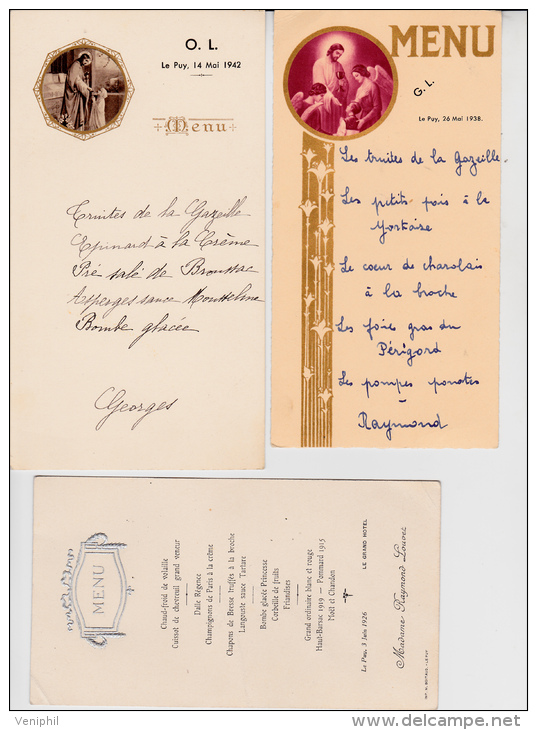 O. L.
Le Puy, 14 Mai 1942
Menu
Truites de la Gazeille
Epinard à la Crème
Pré salé de Broussac
Asperges sauce Mousseline
Bombe glacée
Georges
MENU
G. L.
Le Puy, 26 Mai 1938.
Les truites de la Gazeille
Les petits pois à la
Yortaise
Le coeur de charolais
à la broche
Les foies gras du
Périgord
Les pompes ponotes
Raymond
MENU
Chaud-froid de volaille
Cuissot de chevreuil grand veneur
Dalle Régence
Champignons de Paris à la crème
Chapons de Bresse truffés à la broche
Langouste sauce Tartare
Bombe glacée Princesse
Corbeille de fruits
Friandises
Grand ordinaire blanc et rouge
Haut-Barsac 1919 - Pommard 1915
Moët et Chandon
Le Puy, 3 Juin 1926 LE GRAND HOTEL
Madame Raymond Louvet
Veniphil
www.delcampe.net